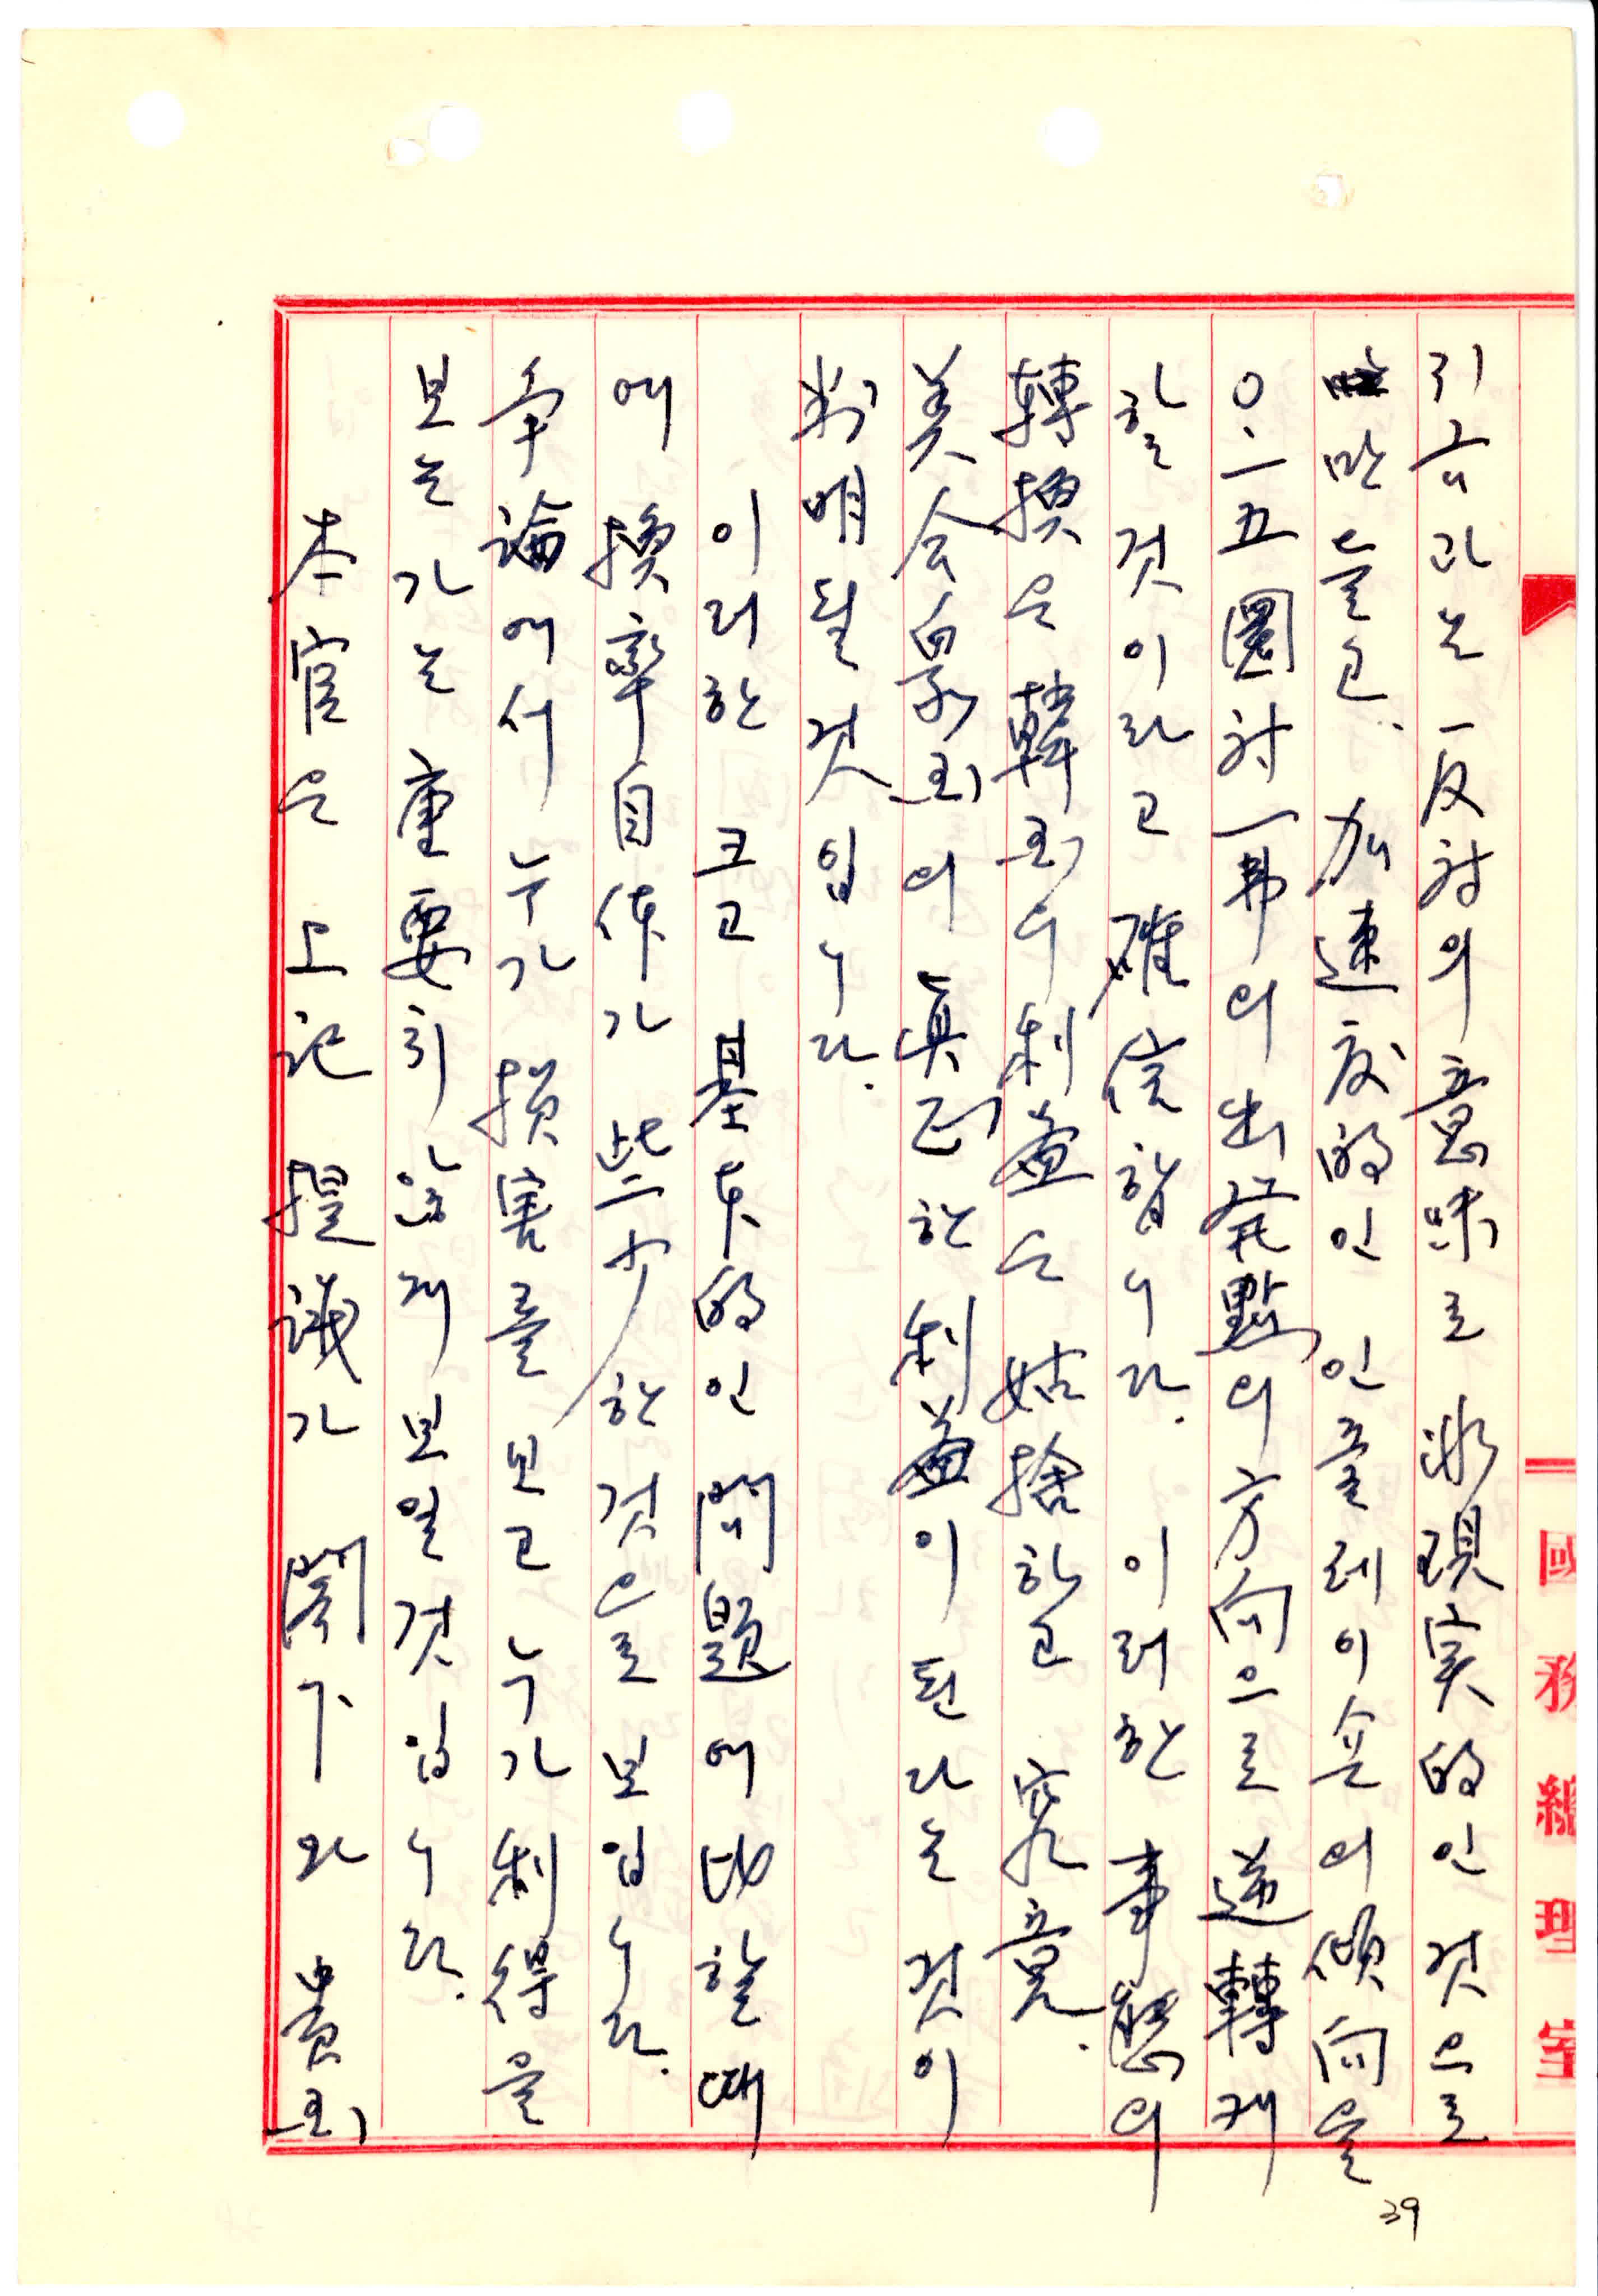 國務總理室
리고 과는 反對의 意味로 非現実的인 것으로
만들고、加速度的인 인플레이숀의 傾向을
〇・一五圜対一弗의 出発點의 方向으로 逆轉케
할 것이라고 確信합니다. 이러한 事態의
轉換은 韓国의 利益은 姑捨하고 究竟、
美合衆国의 眞正한 利益이 된다는 것이
判明될 것입니다.
이러한 크고 基本的인 問題에 比할 때
에 換率自体가 些少한 것으로 보입니다.
争論에서 누가 損害를 보고 누가 利得을
보는가는 重要하지 않게 보일 것입니다.
本官은 上記 提議가 閣下와 貴国
39